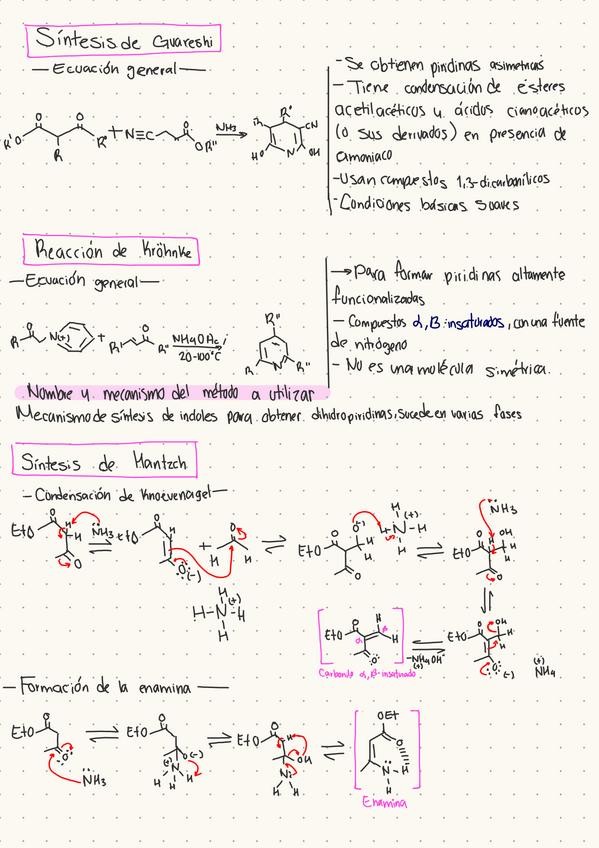 Síntesis de Guareshi
— Ecuación general —
- Se obtienen piridinas asimetricas
- Tiene condensación de ésteres
acetilacéticos y ácidos cianoacéticos
(o sus derivados) en presencia de
amoniaco
- Usan compuestos 1,3-dicarbonílicos
- Condiciones básicas suaves
O O R'O R R' + N≡C O OR" NH3 R' CN HO N OH
Reacción de Kröhnke
— Ecuación general —
→ Para formar piridinas altamente
funcionalizadas
- Compuestos α,β-insaturados, con una fuente
de nitrógeno
- No es una molécula simétrica.
R O N(+) + R' O R" NH4OAc 20-100°C R" R N R"
Nombre y mecanismo del método a utilizar
Mecanismo de síntesis de indoles para obtener dihidropiridinas, sucede en varias fases
Síntesis de Hantzch
- Condensación de Knoevenagel —
EtO O H O NH3 EtO O H O (-) + O H H EtO O O(-) H H O H (+) H-N-H H NH3 EtO O OH H H O
H (+) H-N-H H
EtO O α β H H O
-NH4OH (+)
EtO O OH H H O (-) (+) NH4
Carbonilo α,β-insaturado
— Formación de la enamina —
EtO O O NH3 EtO O O(-) (+) N H H H EtO O H OH N H H OEt O N H H
Enamina